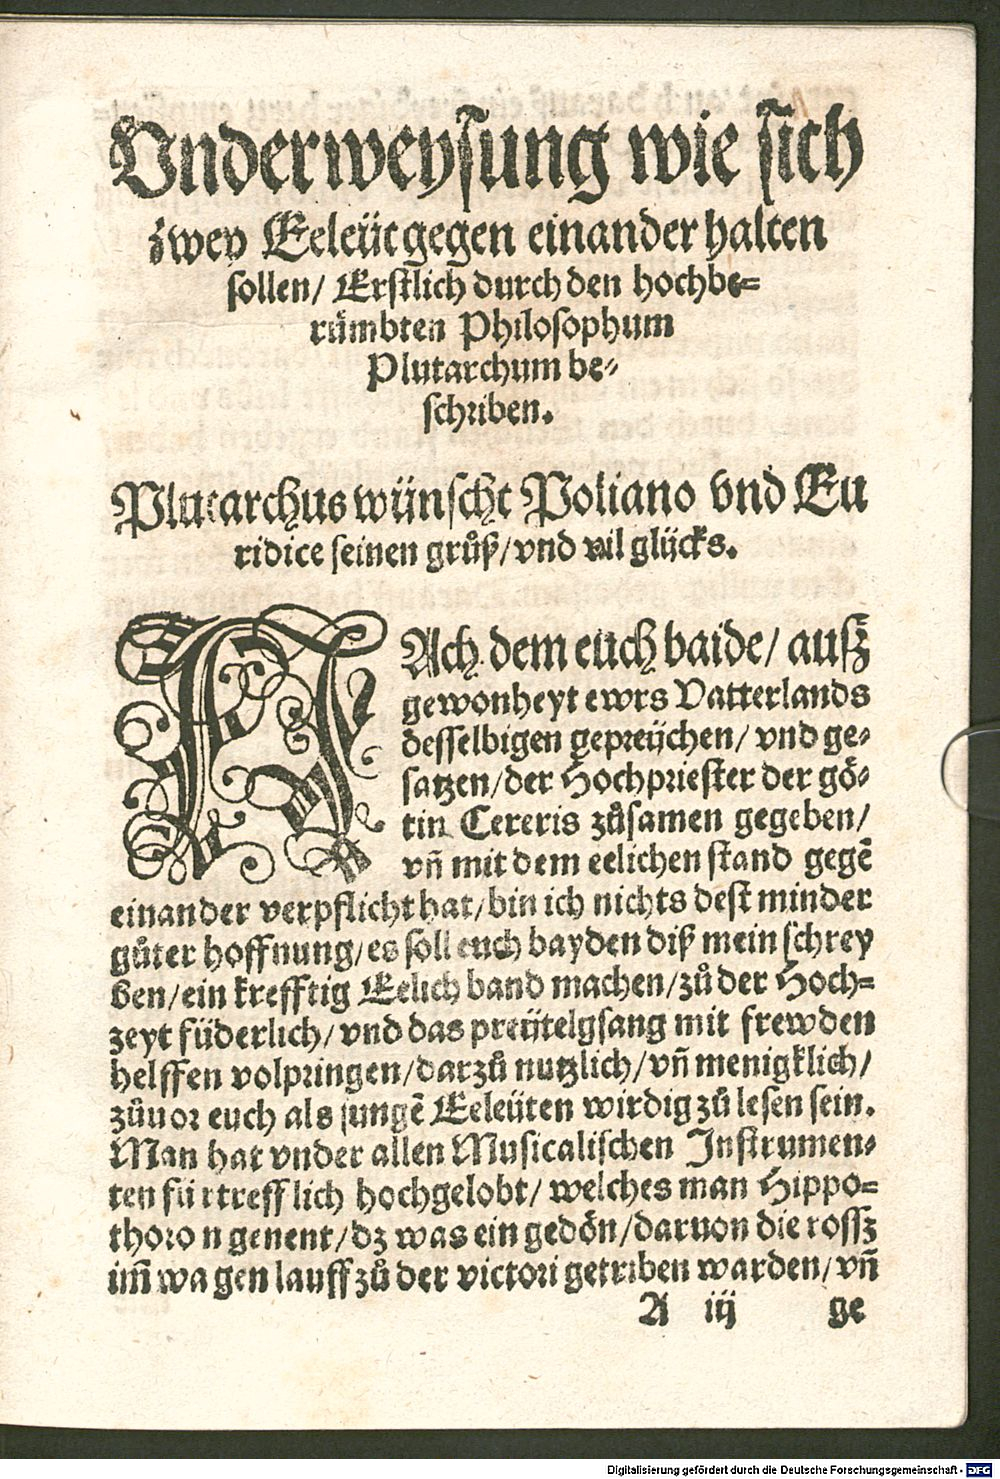 Underweysung wie sich
zwey Eeleüt gegen einander halten
sollen/ Erstlich durch den hochbe-
rümbten Philosophum
Plutarchum be-
schriben.
Plutarchus wünscht Poliano vnd Eu
ridice seinen grůß/ vnd vil glücks.
NAch dem euch baide/ ausz
gewonheyt ewrs Vatterlands
desselbigen gepreüchen/ vnd ge-
satzen/ der Hochpriester der gö-
tin Cereris zůsamen gegeben/
vñ mit dem eelichen stand gegē
einander verpflicht hat/ bin ich nichts dest minder
gůter hoffnung/ es soll euch bayden diß mein schrey
ben/ ein krefftig Eelich band machen/ zů der Hoch-
zeyt füderlich/ vnd das preütelgsang mit frewden
helffen volpringen/ darzů nutzlich/ vñ menigklich/
zůuor euch als jungē Eeleüten wirdig zů lesen sein.
Man hat vnder allen Musicalischen Instrumen-
ten fürtrefflich hochgelobt/ welches man Hippo-
thoron genent/ dz was ein gedön/ daruon die rossz
im̄ wagen lauff zů der victori getriben warden/ vñ
A iij ge
Digitalisierung gefördert durch die Deutsche Forschungsgemeinschaft - DFG